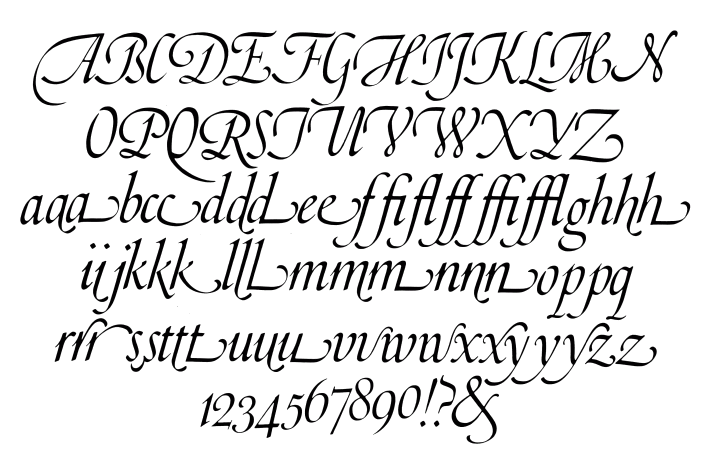 ABCDEFGHIJKLMN
OPQRSTUVWXYZ
aaabccdddeeffiflffffifflghhh
iijkkklllmmmnnnoppq
rrrssttt uuuvvwwxxyyyzz
1234567890!?&